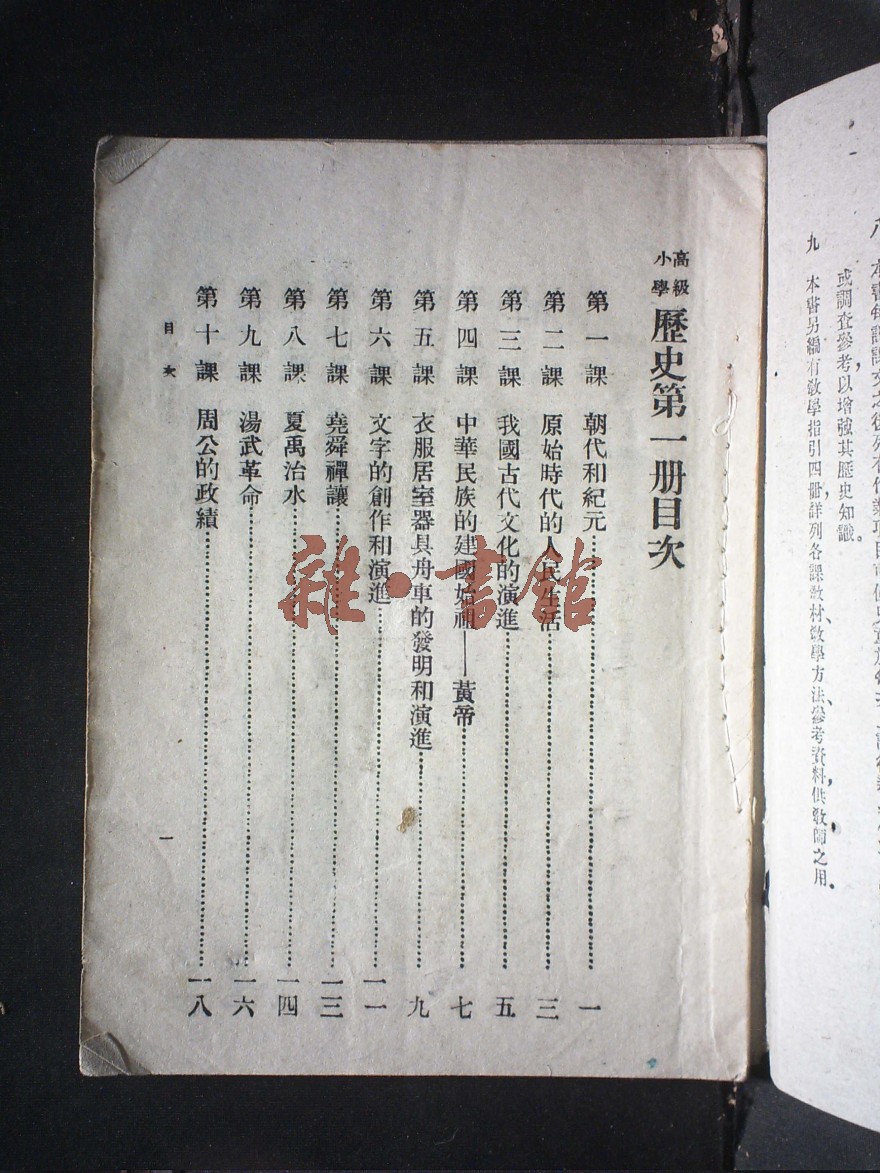 本書每課課文之後列有作業項目
或調查參考以增強其歷史知識。
九 本書另編有教學指引四冊，詳列各課教材、教學方法、參考資料，供教師之用。
高級小學 歷史第一册目次
第一課 朝代和紀元 一
第二課 原始時代的人民生活 三
第三課 我國古代文化的演進 五
第四課 中華民族的建國始祖——黃帝 七
第五課 衣服居室器具舟車的發明和演進 九
第六課 文字的創作和演進 一一
第七課 堯舜禪讓 一三
第八課 夏禹治水 一四
第九課 湯武革命 一六
第十課 周公的政績 一八
目次
一
雜·書館